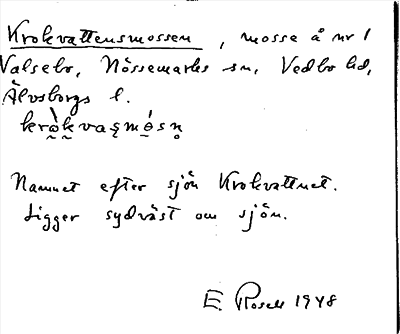 Krokvattensmossen, mosse å nr 1
Valsebo, Nössemarks sn, Vedbo hd,
Älvsborgs l.
kròkvasmósn
Namnet efter sjön Krokvattnet.
Ligger sydväst om sjön.
E. Rosell 1948